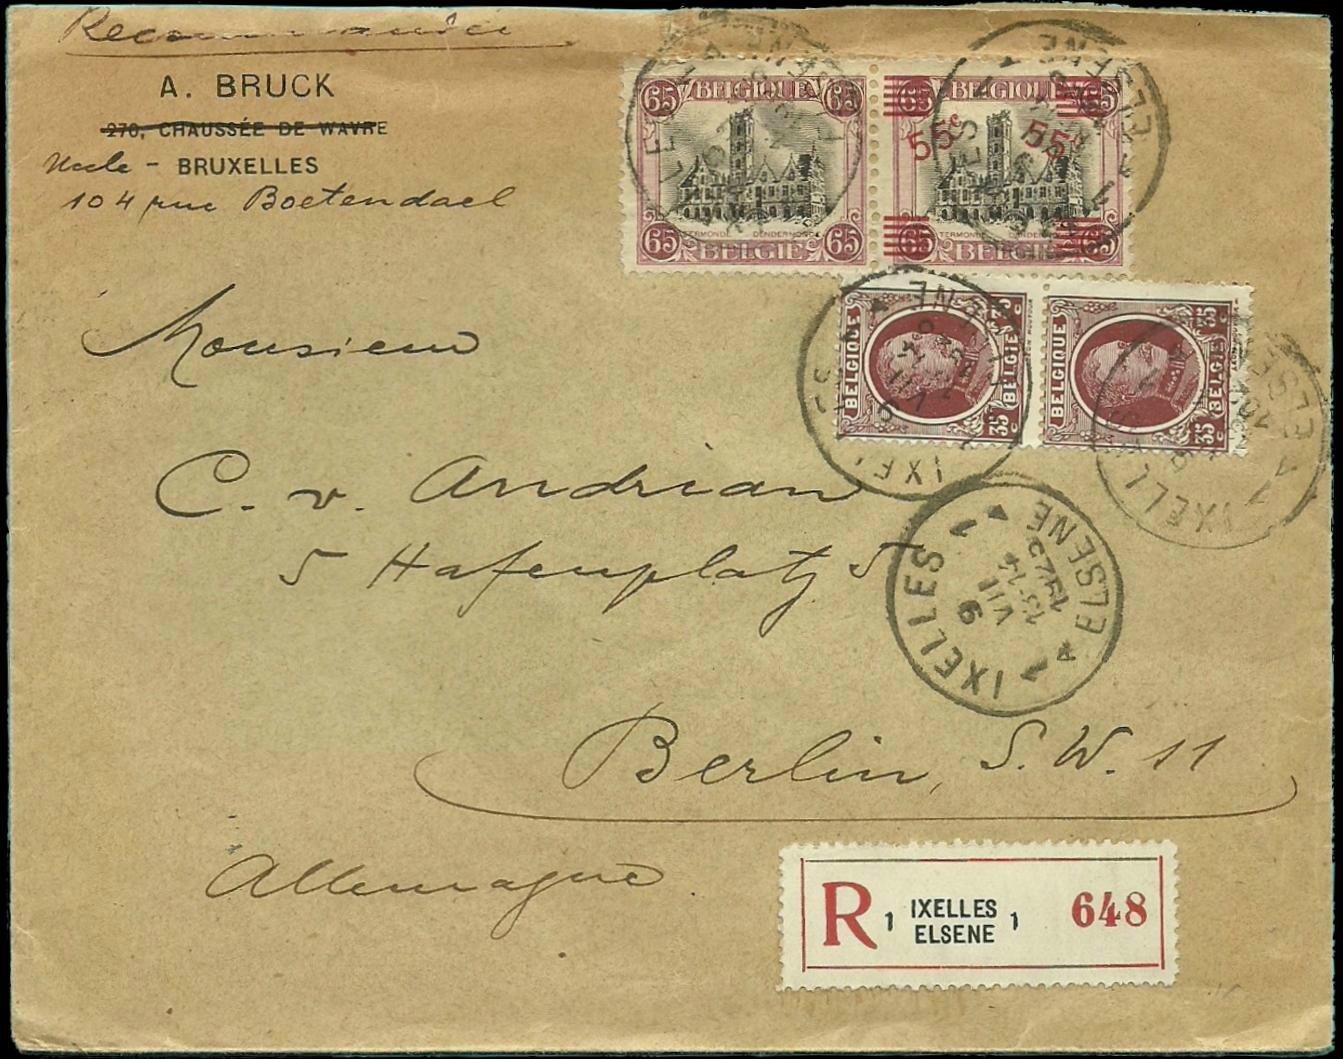 Recommandée
A. BRUCK
270, CHAUSSÉE DE WAVRE
Uccle - BRUXELLES
104 rue Boetendael
65 BELGIQUE 65
TERMONDE DENDERMONDE
65 BELGIË 65
65 BELGIQUE 65
55c 55c
TERMONDE DENDERMONDE
65 BELGIË 65
BELGIQUE
35 c BELGIË 35 c
BELGIQUE
35 c BELGIË 35 c
Monsieur
C. v. Andrian
5 Hafenplatz 5
Berlin, S.W. 11
Allemagne
IXELLES 1 ELSENE
A
9
VII
13-14
1923
1 IXELLES
R 1 IXELLES ELSENE 1 648